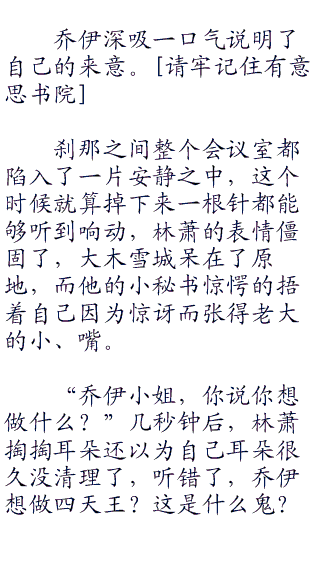 乔伊深吸一口气说明了
自己的来意。[请牢记住有意
思书院]
刹那之间整个会议室都
陷入了一片安静之中，这个
时候就算掉下来一根针都能
够听到响动，林萧的表情僵
固了，大木雪城呆在了原
地，而他的小秘书惊愕的捂
着自己因为惊讶而张得老大
的小、嘴。
“乔伊小姐，你说你想
做什么？”几秒钟后，林萧
掏掏耳朵还以为自己耳朵很
久没清理了，听错了，乔伊
想做四天王？这是什么鬼？